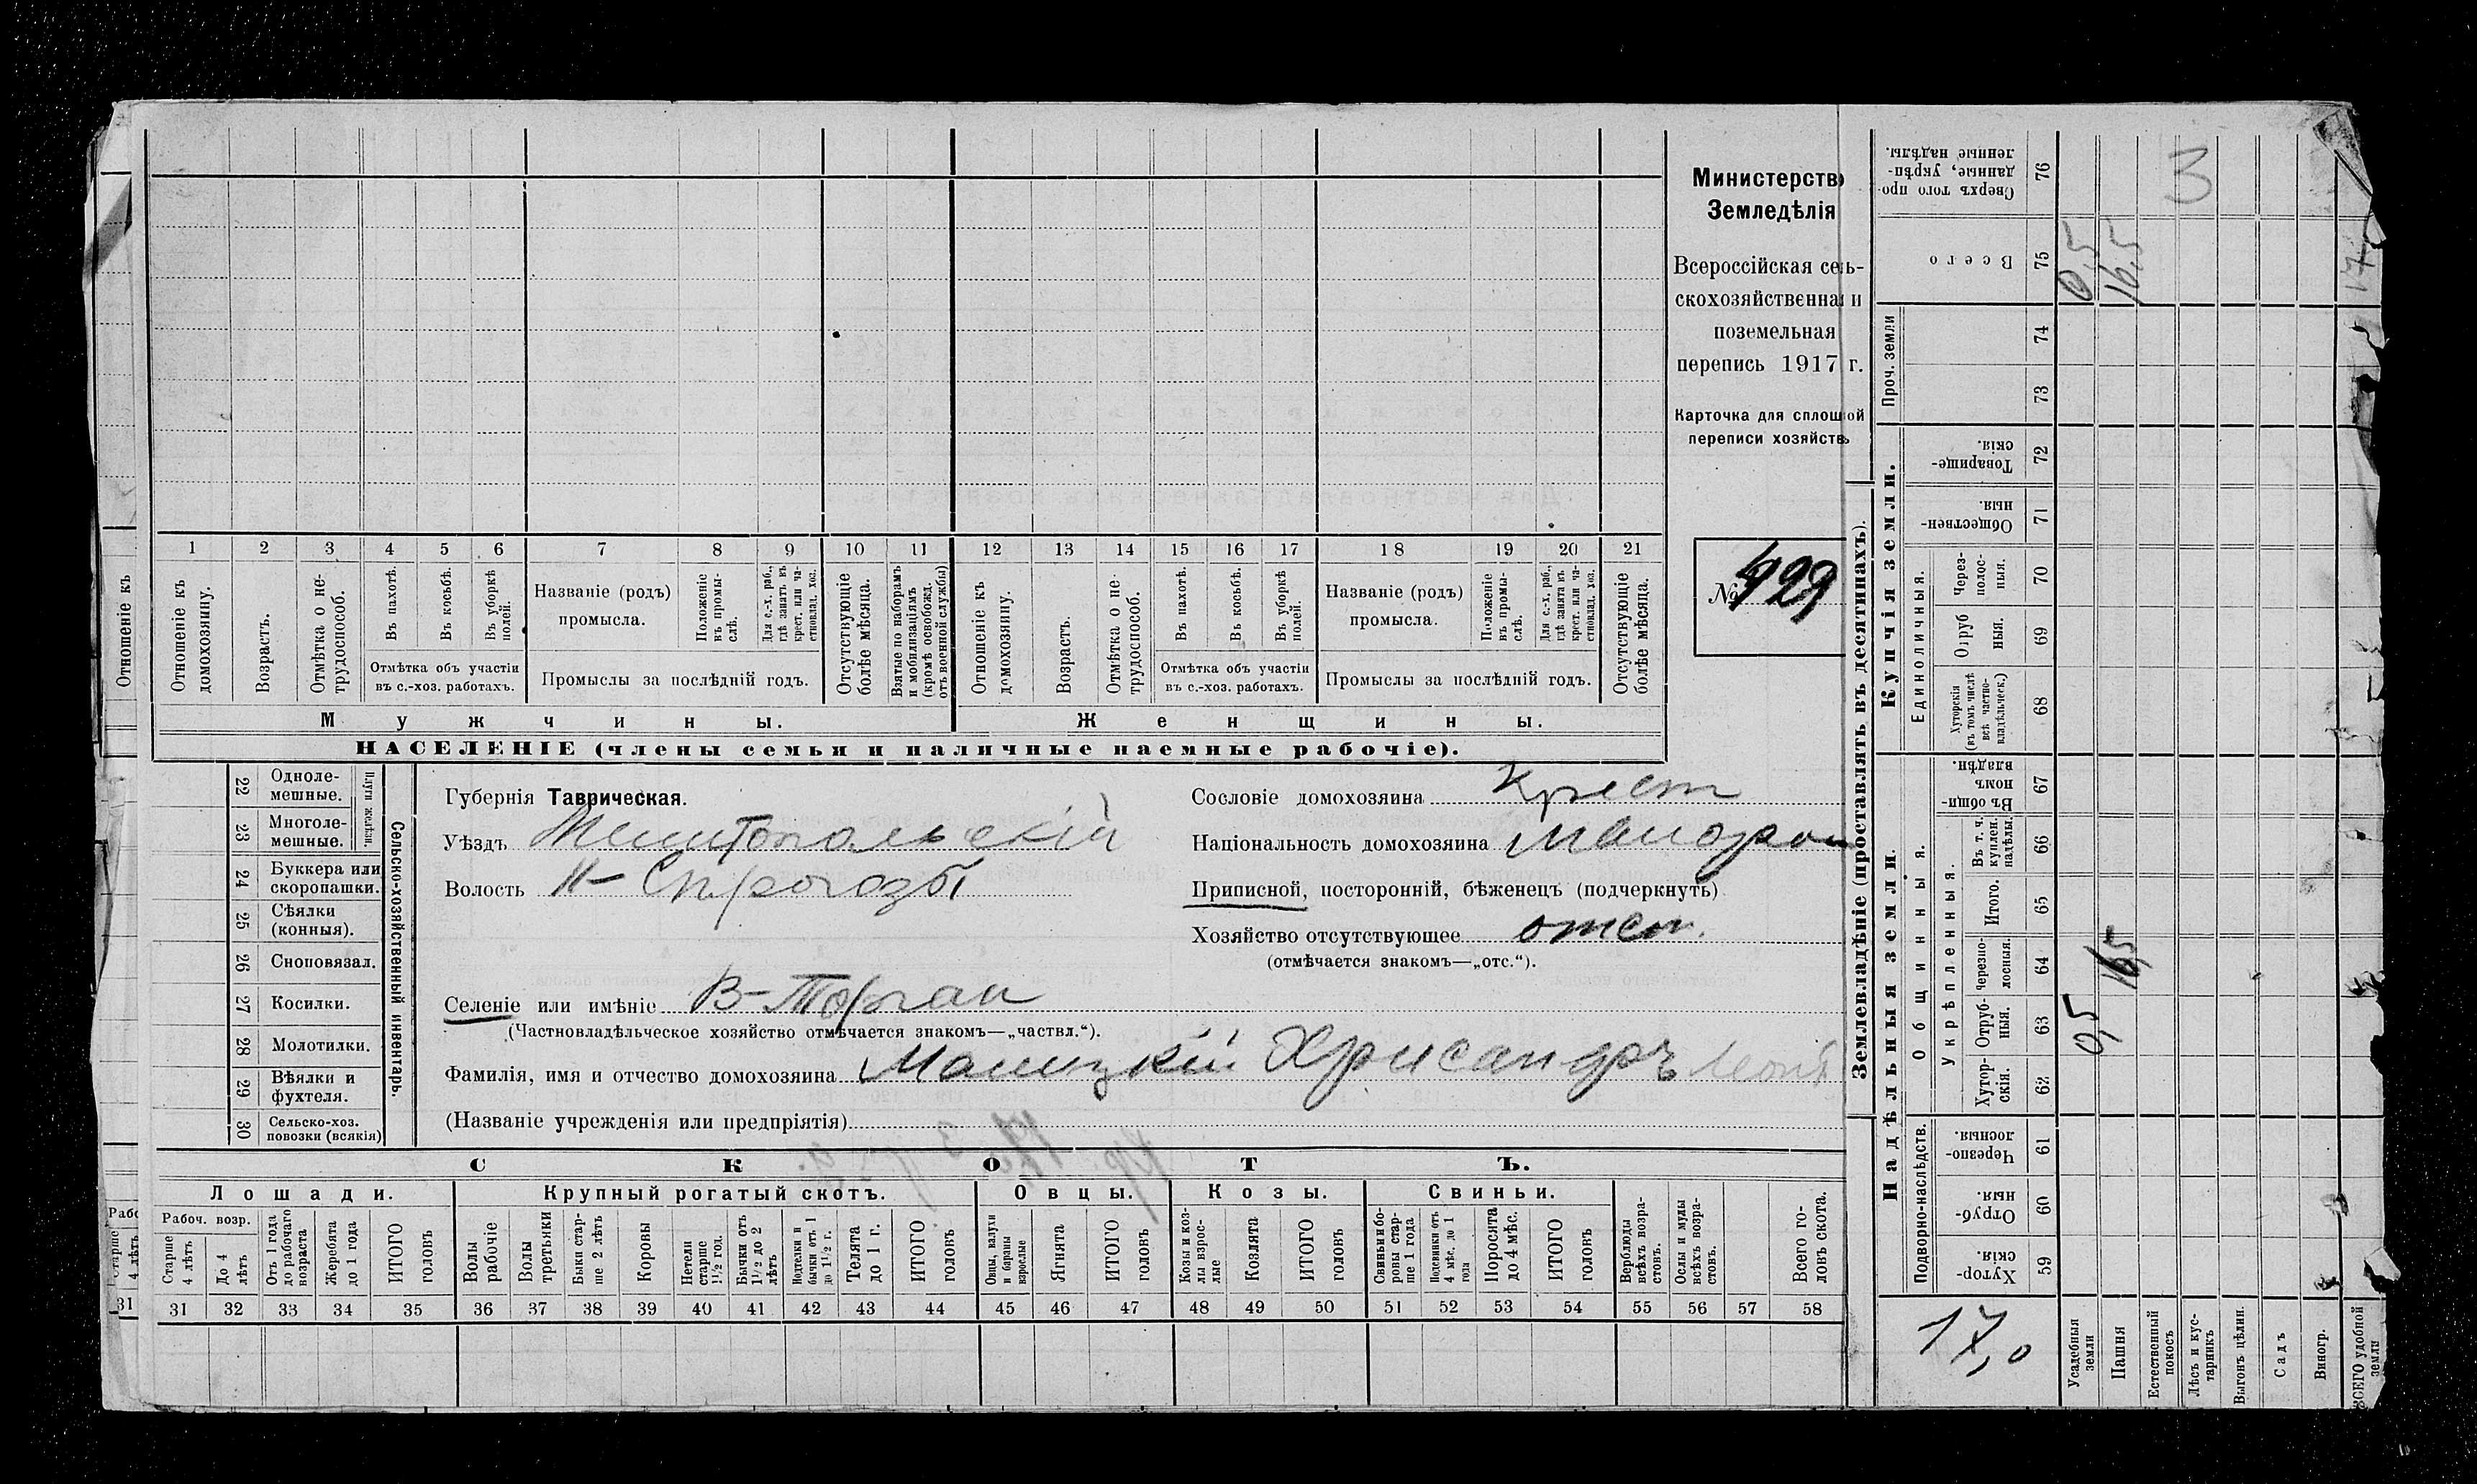 Министерство
Земледѣлія
Всероссійская сель-
скохозяйственная и
поземельная
перепись 1917 г.
Карточка для сплошной
переписи хозяйствъ
№ 429
1 2 3 4 5 6 7 8 9 10 11 12 13 14 15 16 17 18 19 20 21
Отношеніе къ
Отношеніе къ домохозяину.
Возрастъ.
Отмѣтка о не-трудоспособ.
Въ пахотѣ.
Въ косьбѣ.
Въ уборкѣ полей.
Отмѣтка объ участіи
въ с.-хоз. работахъ.
Названіе (родъ)
промысла.
Положеніе въ промы-слѣ.
Для с.-х. раб., гдѣ занятъ въ крест. или ча-стновлад. хоз.
Промыслы за послѣдній годъ.
Отсутствующіе болѣе мѣсяца.
Взятые по наборамъ и мобилизаціямъ (кромѣ освобожд. отъ военной службы)
Отношеніе къ домохозяину.
Возрастъ.
Отмѣтка о не-трудоспособ.
Въ пахотѣ.
Въ косьбѣ.
Въ уборкѣ полей.
Отмѣтка объ участіи
въ с.-хоз. работахъ.
Названіе (родъ)
промысла.
Положеніе въ промы-слѣ.
Для с.-х. раб., гдѣ занята въ крест. или ча-стновлад. хоз.
Промыслы за послѣдній годъ.
Отсутствующіе болѣе мѣсяца.
Мужчины.
Женщины.
НАСЕЛЕНІЕ (члены семьи и наличные наемные рабочіе).
22 Одноле-мешные.
23 Многоле-мешные.
Плуги желѣзн.
24 Буккера или скоропашки.
25 Сѣялки (конныя).
26 Сноповязал.
27 Косилки.
28 Молотилки.
29 Вѣялки и фухтеля.
30 Сельско-хоз. повозки (всякія)
Сельско-хозяйственный инвентарь.
Губернія Таврическая.
Уѣздъ Мелитопольскій
Волость Н-Сѣрогозы
Селеніе или имѣніе В-Торгаи
(Частновладѣльческое хозяйство отмѣчается знакомъ—„частвл.“).
Фамилія, имя и отчество домохозяина Малицкій Хрисандръ
(Названіе учрежденія или предпріятія)
Сословіе домохозяина Крест
Національность домохозяина Малорос
Приписной, посторонній, бѣженецъ (подчеркнуть)
Хозяйство отсутствующее отст.
(отмѣчается знакомъ—„отс.“).
СКОТЪ.
Лошади.
Рабоч. возр.
Старше 4 лѣтъ
До 4 лѣтъ
Отъ 1 года до рабочаго возраста
Жеребята до 1 года
ИТОГО головъ
Крупный рогатый скотъ.
Волы рабочіе
Волы третьяки
Быки стар-ше 2 лѣтъ
Коровы
Нетели старше 1½ год.
Бычки отъ 1½ до 2 лѣтъ
Подтелки и бычки отъ 1 до 1½ г.
Телята до 1 г.
ИТОГО головъ
Овцы.
Овцы, валухи и бараны взрослые
Ягнята
ИТОГО головъ
Козы.
Козы и коз-лы взрос-лые
Козлята
ИТОГО головъ
Свиньи.
Свиньи и бо-ровы стар-ше 1 года
Подсвинки отъ 4 мѣс. до 1 года
Поросята до 4 мѣс.
ИТОГО головъ
Верблюды всѣхъ возра-стовъ.
Ослы и мулы всѣхъ возра-стовъ.
Всего го-ловъ скота.
31 31 32 33 34 35 36 37 38 39 40 41 42 43 44 45 46 47 48 49 50 51 52 53 54 55 56 57 58
Землевладѣніе (проставлять въ десятинахъ).
Надѣльныя земли.
Подворно-наслѣдств.
Хутор-скія. 59
Отруб-ныя 60
Черезпо-лосныя. 61
Общинныя.
Укрѣпленныя.
Хутор-скія. 62
Отруб-ныя. 63
Черезпо-лосныя. 64
Итого. 65
Въ т. ч. куплен. надѣлы. 66
Въ общин-номъ владѣн. 67
Купчія земли.
Единоличныя.
Хуторскія (въ томъ числѣ всѣ частно-владѣльческ.) 68
Отруб ныя. 69
Через-полос-ныя. 70
Обществен-ныя. 71
Товарище-скія. 72
Проч. земли
73
74
Всего 75
Сверхъ того про-данные, укрѣп-ленные надѣлы. 76
17,0
Усадебныя земли 0,5 0,5
Пашня 16,5 16,5
Естественный покосъ 3
Лѣсъ и кус-тарникъ
Выгонъ цѣлин.
Садъ
Виногр.
ВСЕГО удобной земли 17